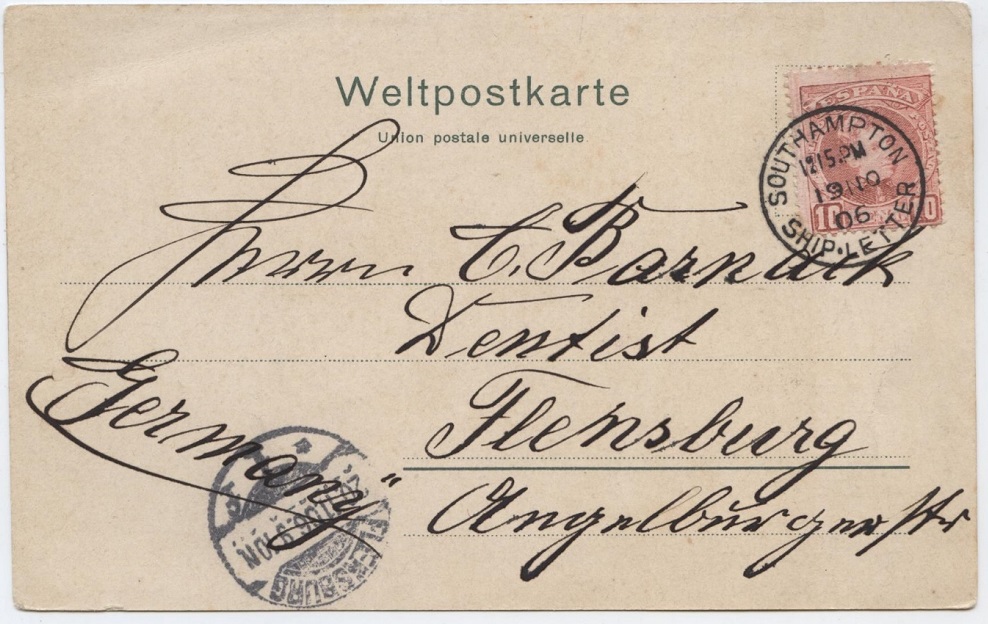 Weltpostkarte
Union postale universelle
ESPAÑA
10
SOUTHAMPTON
12 15. PM
19 NO
06
SHIP·LETTER
Herrn C. Barnack
Dentist
Flensburg
Angelburgerstr
Germany"
FLENSBURG